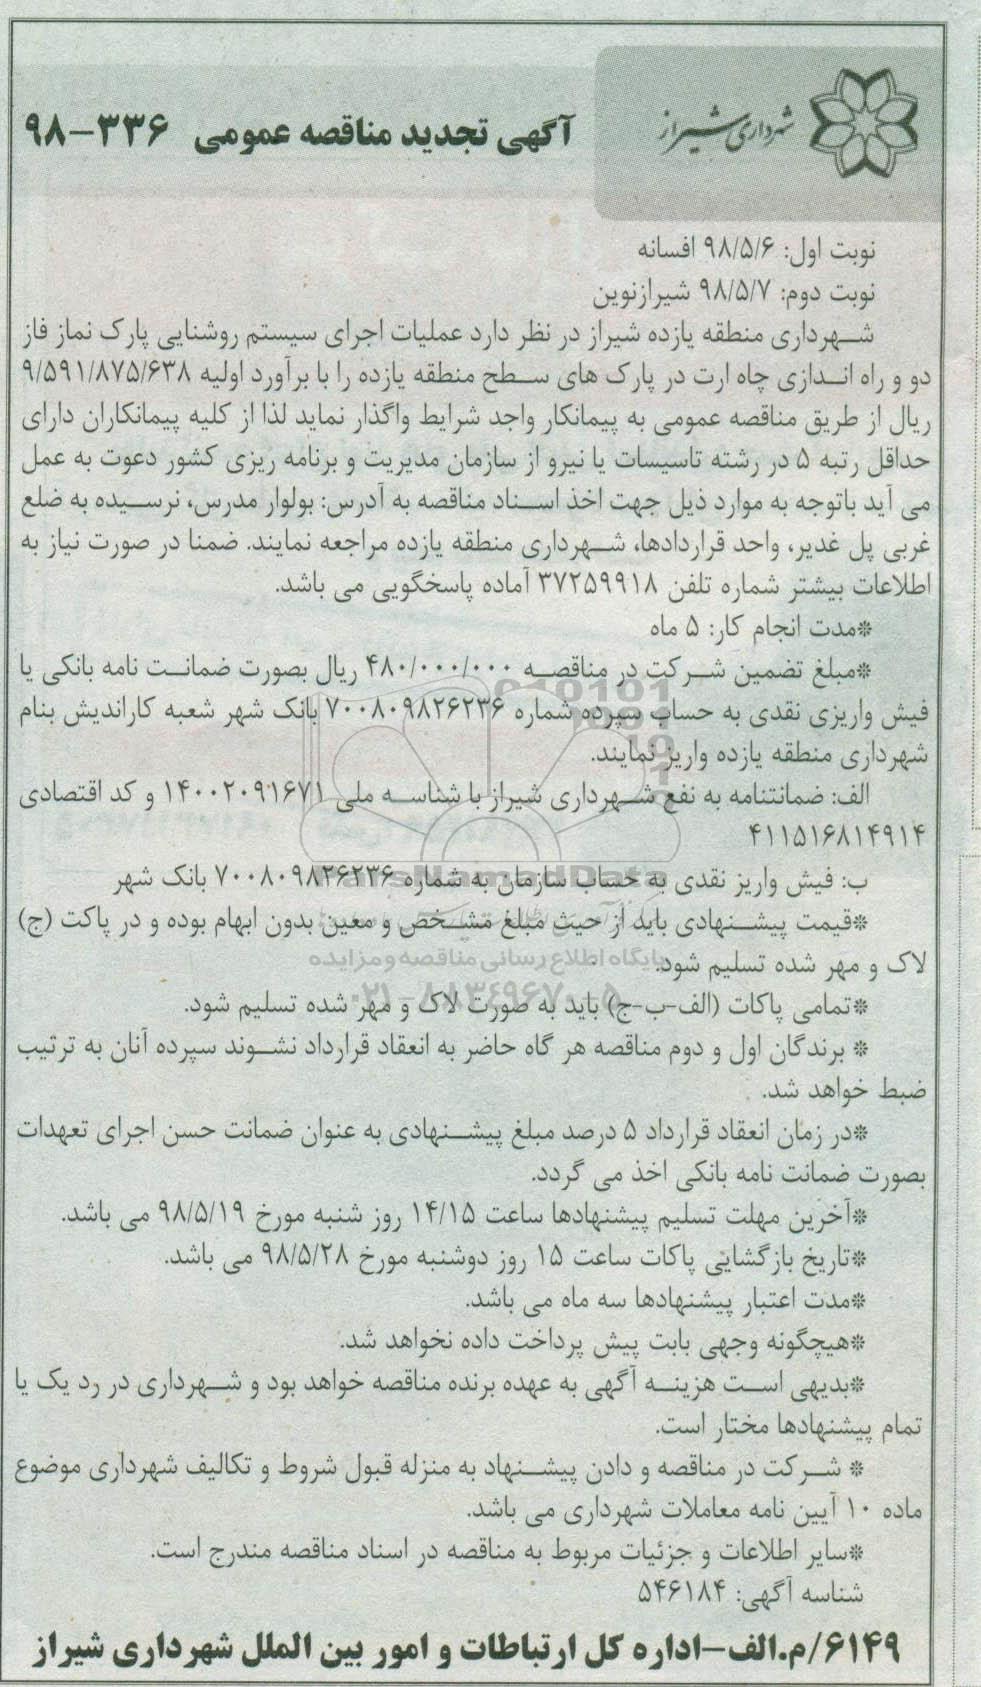 شهرداری شیراز
آگهی تجدید مناقصه عمومی ۳۳۶-۹۸
نوبت اول: ۹۸/۵/۶ افسانه
نوبت دوم: ۹۸/۵/۷ شیرازنوین
شهرداری منطقه یازده شیراز در نظر دارد عملیات اجرای سیستم روشنایی پارک نماز فاز
دو و راه اندازی چاه ارت در پارک های سطح منطقه یازده را با برآورد اولیه ۹/۵۹۱/۸۷۵/۶۳۸
ریال از طریق مناقصه عمومی به پیمانکار واجد شرایط واگذار نماید لذا از کلیه پیمانکاران دارای
حداقل رتبه ۵ در رشته تاسیسات یا نیرو از سازمان مدیریت و برنامه ریزی کشور دعوت به عمل
می آید باتوجه به موارد ذیل جهت اخذ اسناد مناقصه به آدرس: بولوار مدرس، نرسیده به ضلع
غربی پل غدیر، واحد قراردادها، شهرداری منطقه یازده مراجعه نمایند. ضمنا در صورت نیاز به
اطلاعات بیشتر شماره تلفن ۳۷۲۵۹۹۱۸ آماده پاسخگویی می باشد.
*مدت انجام کار: ۵ ماه
*مبلغ تضمین شرکت در مناقصه ۴۸۰/۰۰۰/۰۰۰ ریال بصورت ضمانت نامه بانکی یا
فیش واریزی نقدی به حساب سپرده شماره ۷۰۰۸۰۹۸۲۶۲۳۶ بانک شهر شعبه کاراندیش بنام
شهرداری منطقه یازده واریز نمایند.
الف: ضمانتنامه به نفع شهرداری شیراز با شناسه ملی ۱۴۰۰۲۰۹۱۶۷۱ و کد اقتصادی
۴۱۱۵۱۶۸۱۴۹۱۴
ب: فیش واریز نقدی به حساب سازمان به شماره ۷۰۰۸۰۹۸۲۶۲۳۶ بانک شهر
ParsNamadData
*قیمت پیشنهادی باید از حیث مبلغ مشخص و معین بدون ابهام بوده و در پاکت (ج)
لاک و مهر شده تسلیم شود.
پایگاه اطلاع رسانی مناقصه و مزایده
*تمامی پاکات (الف-ب-ج) باید به صورت لاک و مهر شده تسلیم شود.
۰۲۱-۸۸۳۴۹۶۷۰-۵
* برندگان اول و دوم مناقصه هر گاه حاضر به انعقاد قرارداد نشوند سپرده آنان به ترتیب
ضبط خواهد شد.
*در زمان انعقاد قرارداد ۵ درصد مبلغ پیشنهادی به عنوان ضمانت حسن اجرای تعهدات
بصورت ضمانت نامه بانکی اخذ می گردد.
*آخرین مهلت تسلیم پیشنهادها ساعت ۱۴/۱۵ روز شنبه مورخ ۹۸/۵/۱۹ می باشد.
*تاریخ بازگشایی پاکات ساعت ۱۵ روز دوشنبه مورخ ۹۸/۵/۲۸ می باشد.
*مدت اعتبار پیشنهادها سه ماه می باشد.
*هیچگونه وجهی بابت پیش پرداخت داده نخواهد شد.
*بدیهی است هزینه آگهی به عهده برنده مناقصه خواهد بود و شهرداری در رد یک یا
تمام پیشنهادها مختار است.
* شرکت در مناقصه و دادن پیشنهاد به منزله قبول شروط و تکالیف شهرداری موضوع
ماده ۱۰ آیین نامه معاملات شهرداری می باشد.
*سایر اطلاعات و جزئیات مربوط به مناقصه در اسناد مناقصه مندرج است.
شناسه آگهی: ۵۴۶۱۸۴
۶۱۴۹/م.الف-اداره کل ارتباطات و امور بین الملل شهرداری شیراز